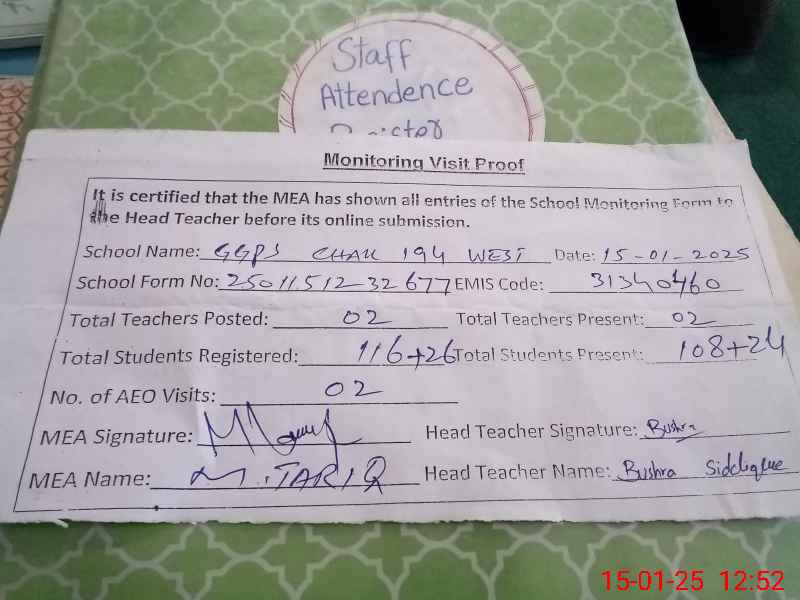 Staff
Attendence
Monitoring Visit Proof
It is certified that the MEA has shown all entries of the School Monitoring Form to
the Head Teacher before its online submission.
School Name: GGPS CHAK 194 WEST Date: 15-01-2025
School Form No: 2501151232677 EMIS Code: 31340460
Total Teachers Posted: 02 Total Teachers Present: 02
Total Students Registered: 116+26 Total Students Present: 108+24
No. of AEO Visits: 02
MEA Signature: Head Teacher Signature: Bushra
MEA Name: M. TARIQ Head Teacher Name: Bushra Siddique
15-01-25 12:52